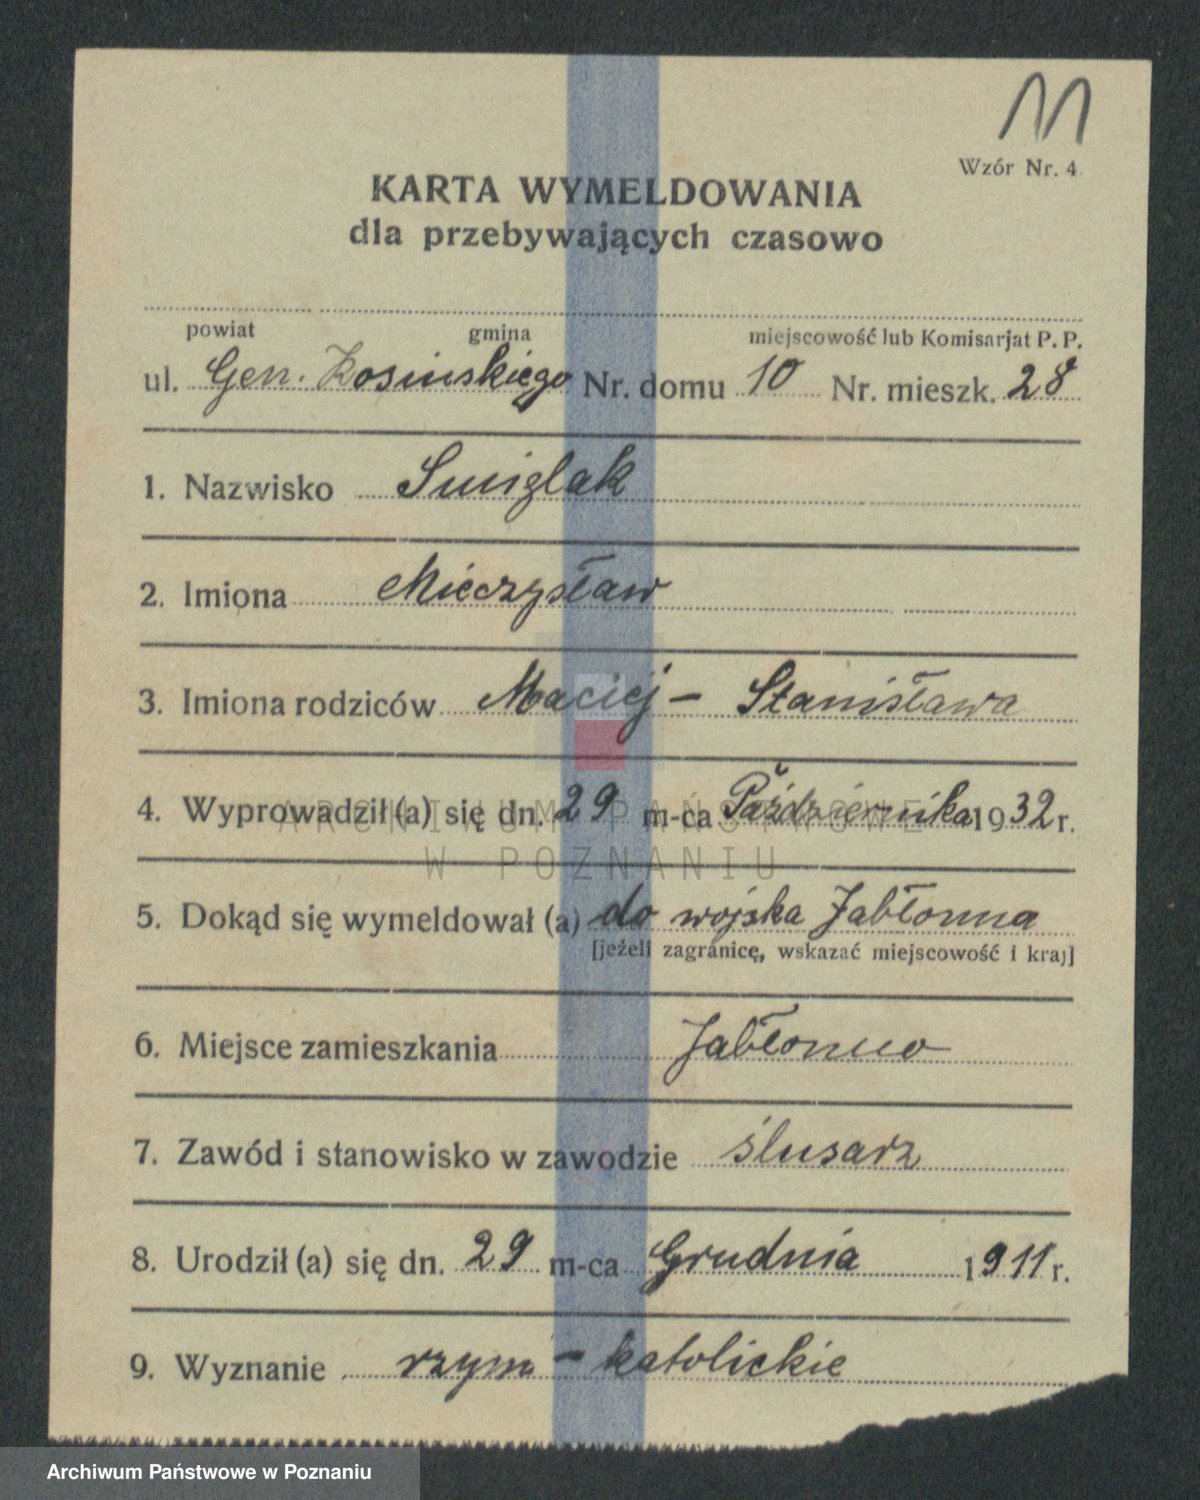 Wzór Nr. 4
KARTA WYMELDOWANIA
dla przebywających czasowo
powiat gmina miejscowość lub Komisarjat P. P.
ul. Gen. Kosinskiego Nr. domu 10 Nr. mieszk. 28
1. Nazwisko Smiglak
2. Imiona Mieczysław
3. Imiona rodziców Maciej - Stanisława
4. Wyprowadził (a) się dn. 29 m-ca Października 1932 r.
ARCHIWUM PAŃSTWOWE
W POZNANIU
5. Dokąd się wymeldował (a) do wojska Jabłonna
[jeżeli zagranicę, wskazać miejscowość i kraj]
6. Miejsce zamieszkania Jabłonno
7. Zawód i stanowisko w zawodzie ślusarz
8. Urodził (a) się dn. 29 m-ca Grudnia 1911 r.
9. Wyznanie rzym - katolickie
Archiwum Państwowe w Poznaniu